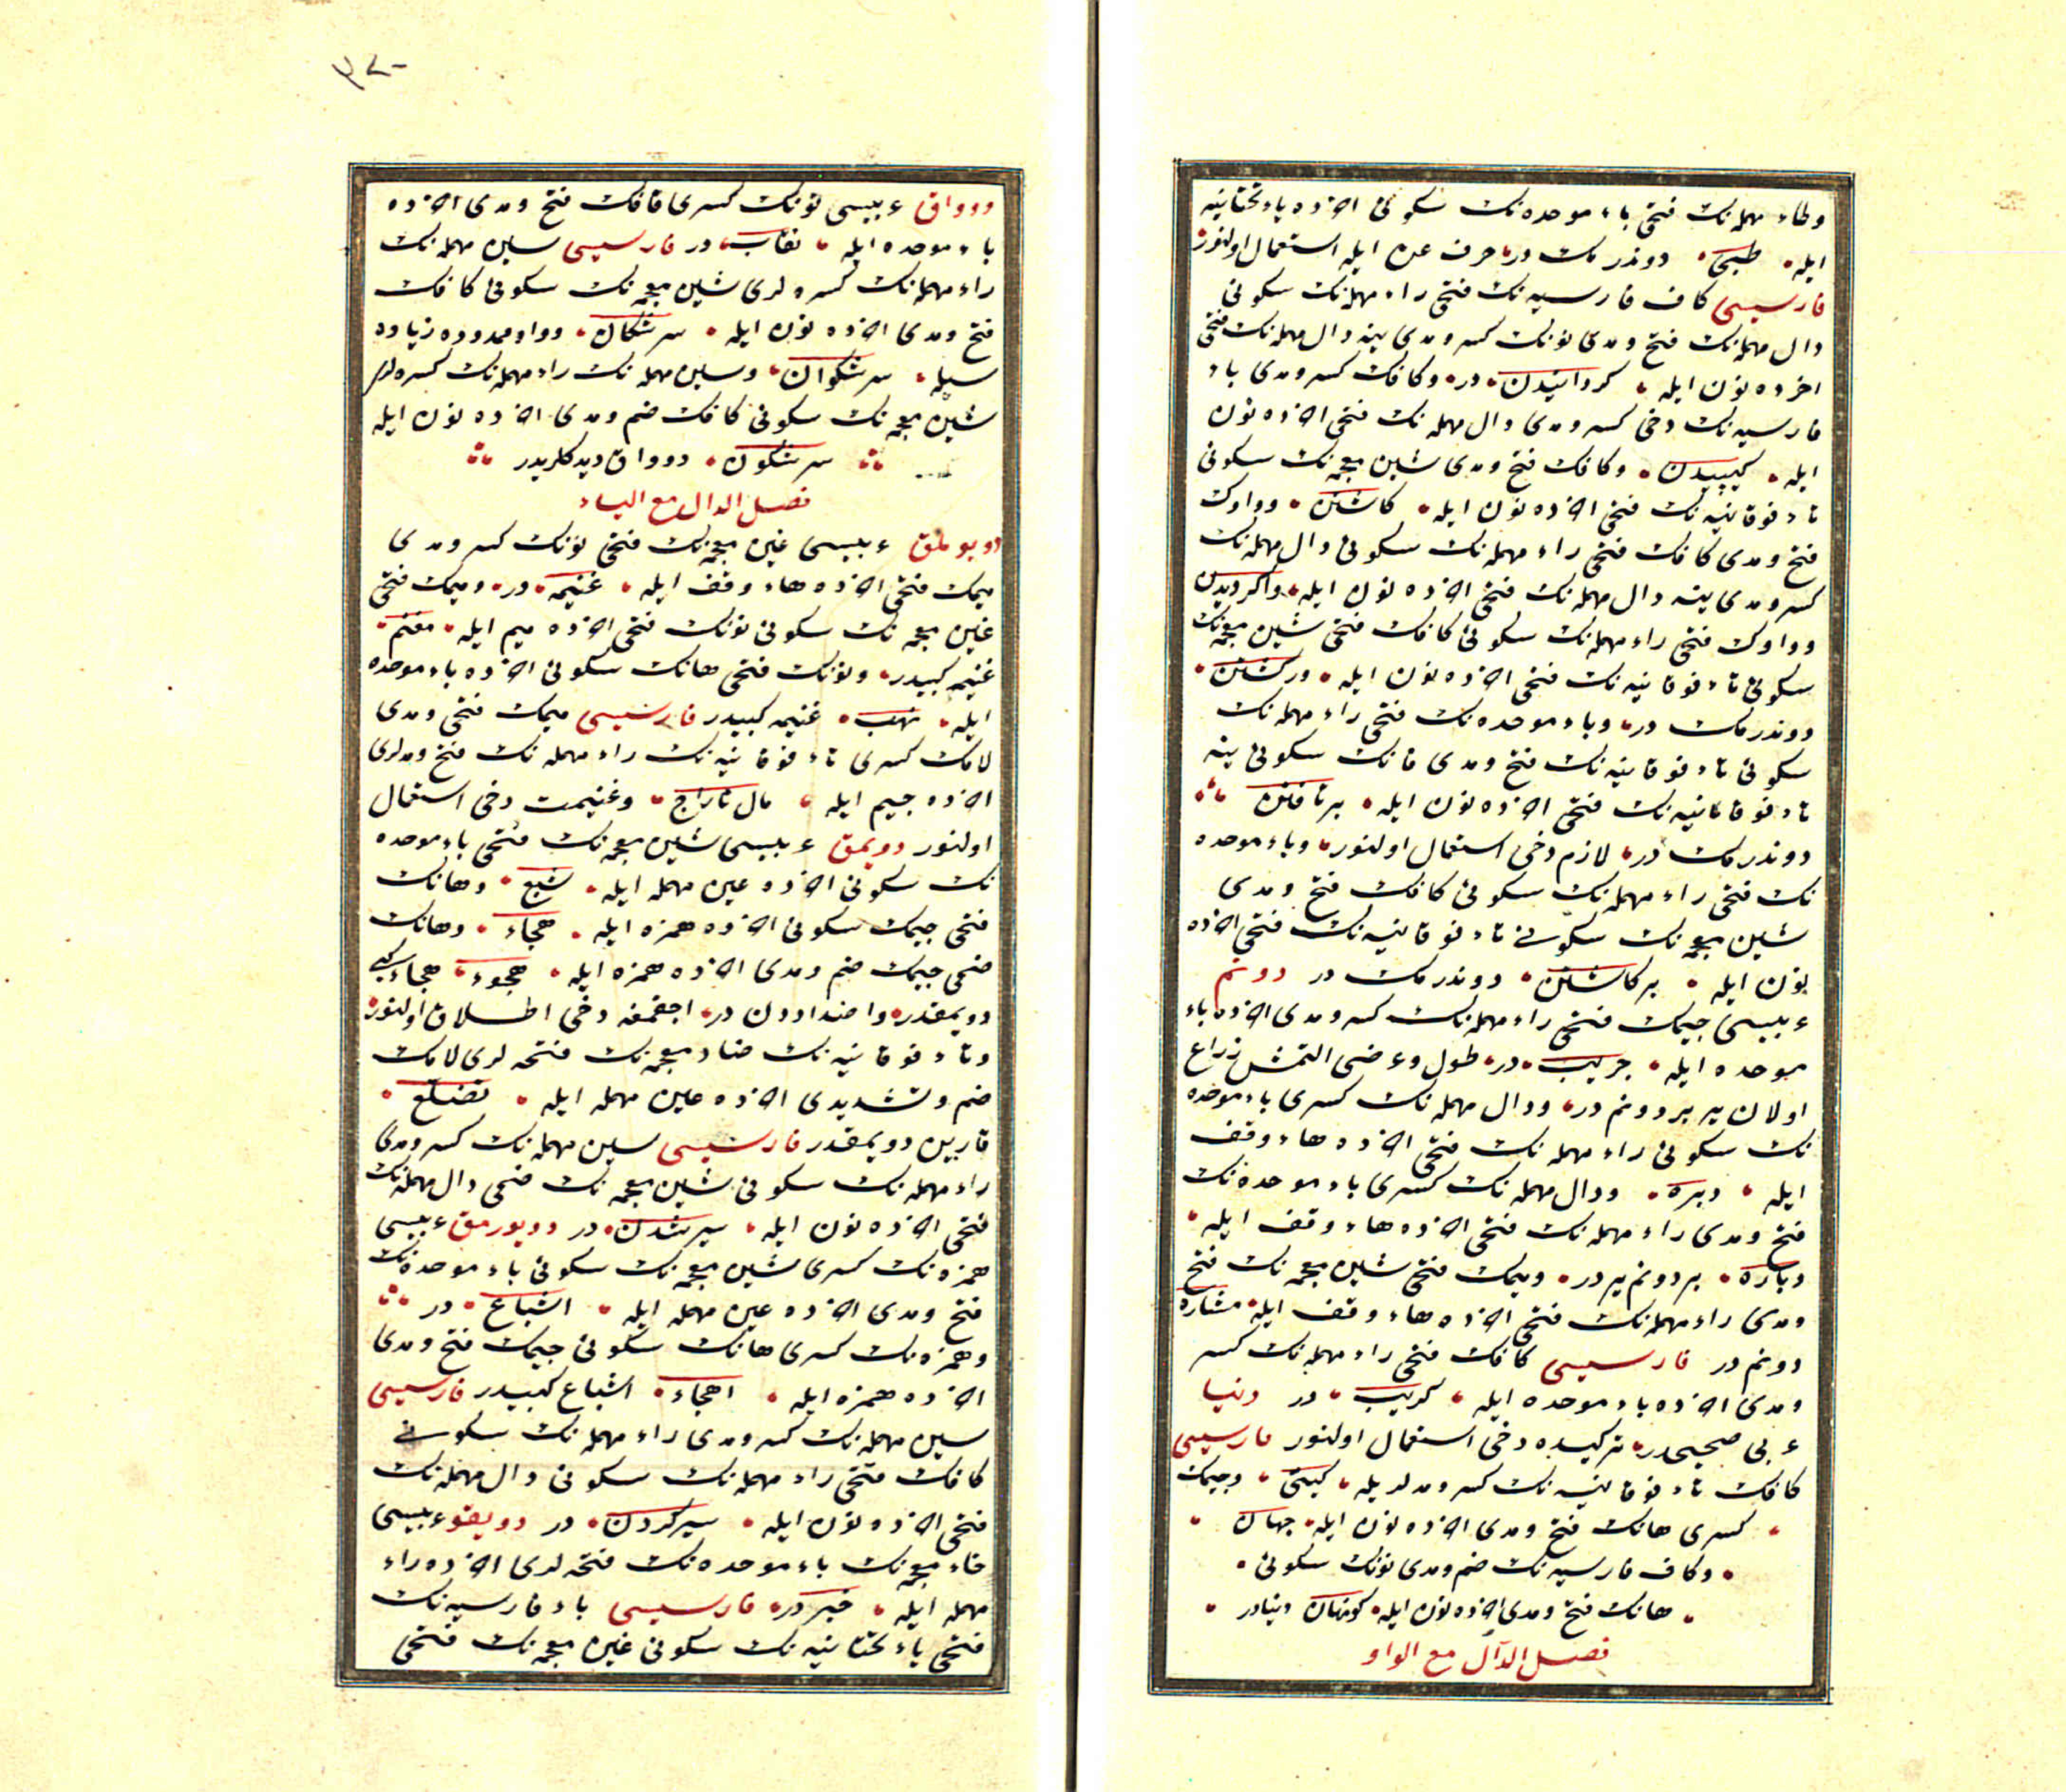 وطاء مهمله‌نك فتحى باء موحده‌نك سكونى اخرده ياء تحتانيه
ايله طبى دوندرمك در حرف عن ايله استعمال اولنور
فارسيسى كاف فارسيه‌نك فتحى راء مهمله‌نك سكونى
دال مهمله‌نك فتح ومدى نونك كسر ومدى ينه دال مهمله‌نك فتحى
اخرده نون ايله كردانيدن در وكافك كسر ومدى باء
فارسيه‌نك دخى كسر ومدى دال مهمله‌نك فتحى اخرده نون
ايله كيپيدن وكافك فتح ومدى شين معجمه‌نك سكونى
تاء فوقانيه‌نك فتحى اخرده نون ايله كاشتن وواوك
فتح ومدى كافك فتحى راء مهمله‌نك سكونى دال مهمله‌نك
كسر ومدى ينه دال مهمله‌نك فتحى اخرده نون ايله واكرديدن
وواوك فتحى راء مهمله‌نك سكونى كافك فتحى شين معجمه‌نك
سكونى تاء فوقانيه‌نك فتحى اخرده نون ايله وركشتن
دوندرمك در وباء موحده‌نك فتحى راء مهمله‌نك
سكونى تاء فوقانيه‌نك فتح ومدى فانك سكونى ينه
تاء فوقانيه‌نك فتحى اخرده نون ايله برتافتن
دوندرمك در لازم دخى استعمال اولنور وباء موحده
نك فتحى راء مهمله‌نك سكونى كافك فتح ومدى
شين معجمه‌نك سكونى تاء فوقانيه‌نك فتحى اخرده
نون ايله بركاشتن دوندرمك در دونم
عربيسى جيمك فتحى راء مهمله‌نك كسر ومدى اخرده باء
موحده ايله جريب در طول وعرضى التمش ذراع
اولان ير بر دونم در ودال مهمله‌نك كسرى باء موحده
نك سكونى راء مهمله‌نك فتحى اخرده هاء وقف
ايله دبره ودال مهمله‌نك كسرى باء موحده‌نك
فتح ومدى راء مهمله‌نك فتحى اخرده هاء وقف ايله
دباره بر دونم ير در وميمك فتحى شين معجمه‌نك فتح
ومدى راء مهمله‌نك فتحى اخرده هاء وقف ايله مشاره
دونم در فارسيسى كافك فتحى راء مهمله‌نك كسر
ومدى اخرده باء موحده ايله كريب در دنيا
عربى صحيحدر تركيده دخى استعمال اولنور فارسيسى
كافك تاء فوقانيه‌نك كسر ومدلريله كيتى وجيمك
كسرى هانك فتح ومدى اخرده نون ايله جهان
وكاف فارسيه‌نك ضم ومدى نونك سكونى
هانك فتح ومدى اخرده نون ايله كونهان دنيادر
فصل الدال مع الواو
٣٢٠
دوواق عربيسى نونك كسرى قافك فتح ومدى اخرده
باء موحده ايله نقاب در فارسيسى سين مهمله‌نك
راء مهمله‌نك كسره لرى شين معجمه‌نك سكونى كافك
فتح ومدى اخرده نون ايله سرشكان وواو ممدوده زياده
سيله سرشكوان وسين مهمله‌نك راء مهمله‌نك كسره لرى
شين معجمه‌نك سكونى كافك ضم ومدى اخرده نون ايله
سرشكون دوواق ديدكلريدر
فصل الدال مع الياء
دويوملق عربيسى غين معجمه‌نك فتحى نونك كسر ومدى
ميمك فتحى اخرده هاء وقف ايله غنيمه در وميمك فتحى
غين معجمه‌نك سكونى نونك فتحى اخرده ميم ايله مغنم
غنيمه كبيدر ونونك فتحى هانك سكونى اخرده باء موحده
ايله نهب غنيمه كبيدر فارسيسى ميمك فتحى ومدى
لامك كسرى تاء فوقانيه‌نك راء مهمله‌نك فتح ومدلرى
اخرده جيم ايله مال تاراج وغنيمت دخى استعمال
اولنور دويمق عربيسى شين معجمه‌نك فتحى باء موحده
نك سكونى اخرده عين مهمله ايله شبع وهانك
فتحى جيمك سكونى اخرده همزه ايله هجاء وهانك
ضمى جيمك ضم ومدى اخرده همزه ايله هجوء هجاء كبى
دويمقدر واضداددن در اجقمغه دخى اطلاق اولنور
وتاء فوقانيه‌نك ضاد معجمه‌نك فتحه لرى لامك
ضم وتشديدى اخرده عين مهمله ايله تضلع
قارين دويمقدر فارسيسى سين مهمله‌نك كسر ومدى
راء مهمله‌نك سكونى شين معجمه‌نك ضمى دال مهمله‌نك
فتحى اخرده نون ايله سير شدن در دويورمق عربيسى
همزه‌نك كسرى شين معجمه‌نك سكونى باء موحده‌نك
فتح ومدى اخرده عين مهمله ايله اشباع در
وهمزه‌نك كسرى هانك سكونى جيمك فتح ومدى
اخرده همزه ايله اهجاء اشباع كبيدر فارسيسى
سين مهمله‌نك كسر ومدى راء مهمله‌نك سكونى
كافك فتحى راء مهمله‌نك سكونى دال مهمله‌نك
فتحى اخرده نون ايله سير كردن در دويغو عربيسى
خاء معجمه‌نك باء موحده‌نك فتحه لرى اخرده راء
مهمله ايله خبر در فارسيسى باء فارسيه‌نك
فتحى ياء تحتانيه‌نك سكونى غين معجمه‌نك فتحى